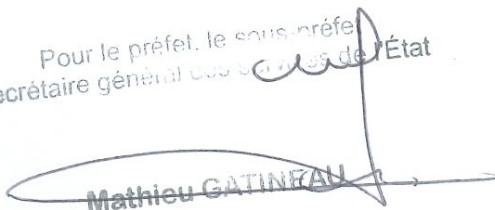 Pour le préfet, le sous-préfet
ecrétaire général des services de l'État
Mathieu GATINEAU